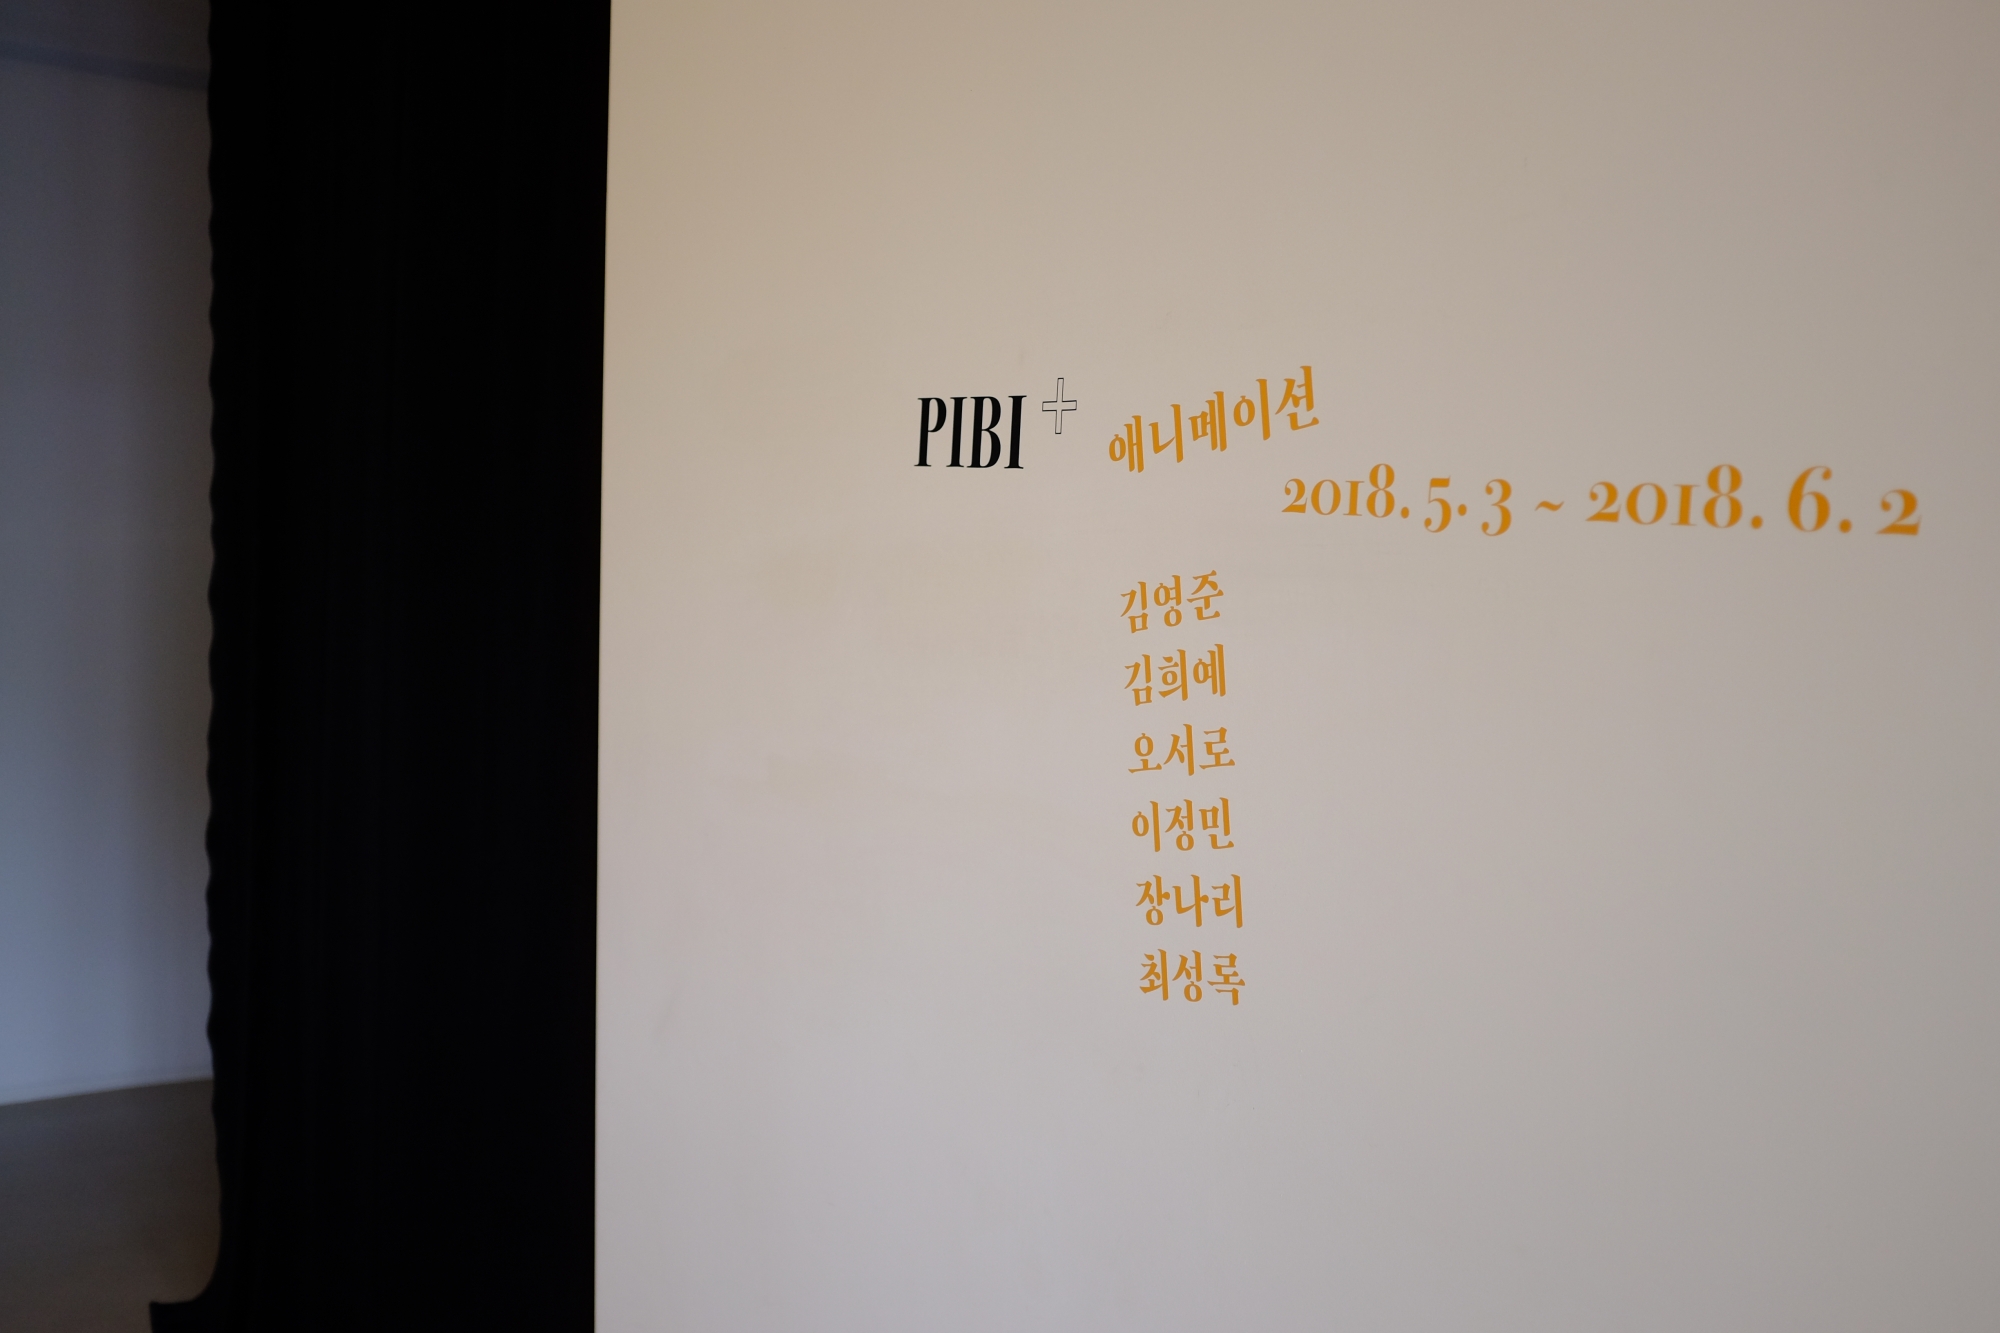 PIBI+ 애니메이션
2018. 5. 3 ~ 2018. 6. 2
김영준
김희예
오서로
이정민
장나리
최성록